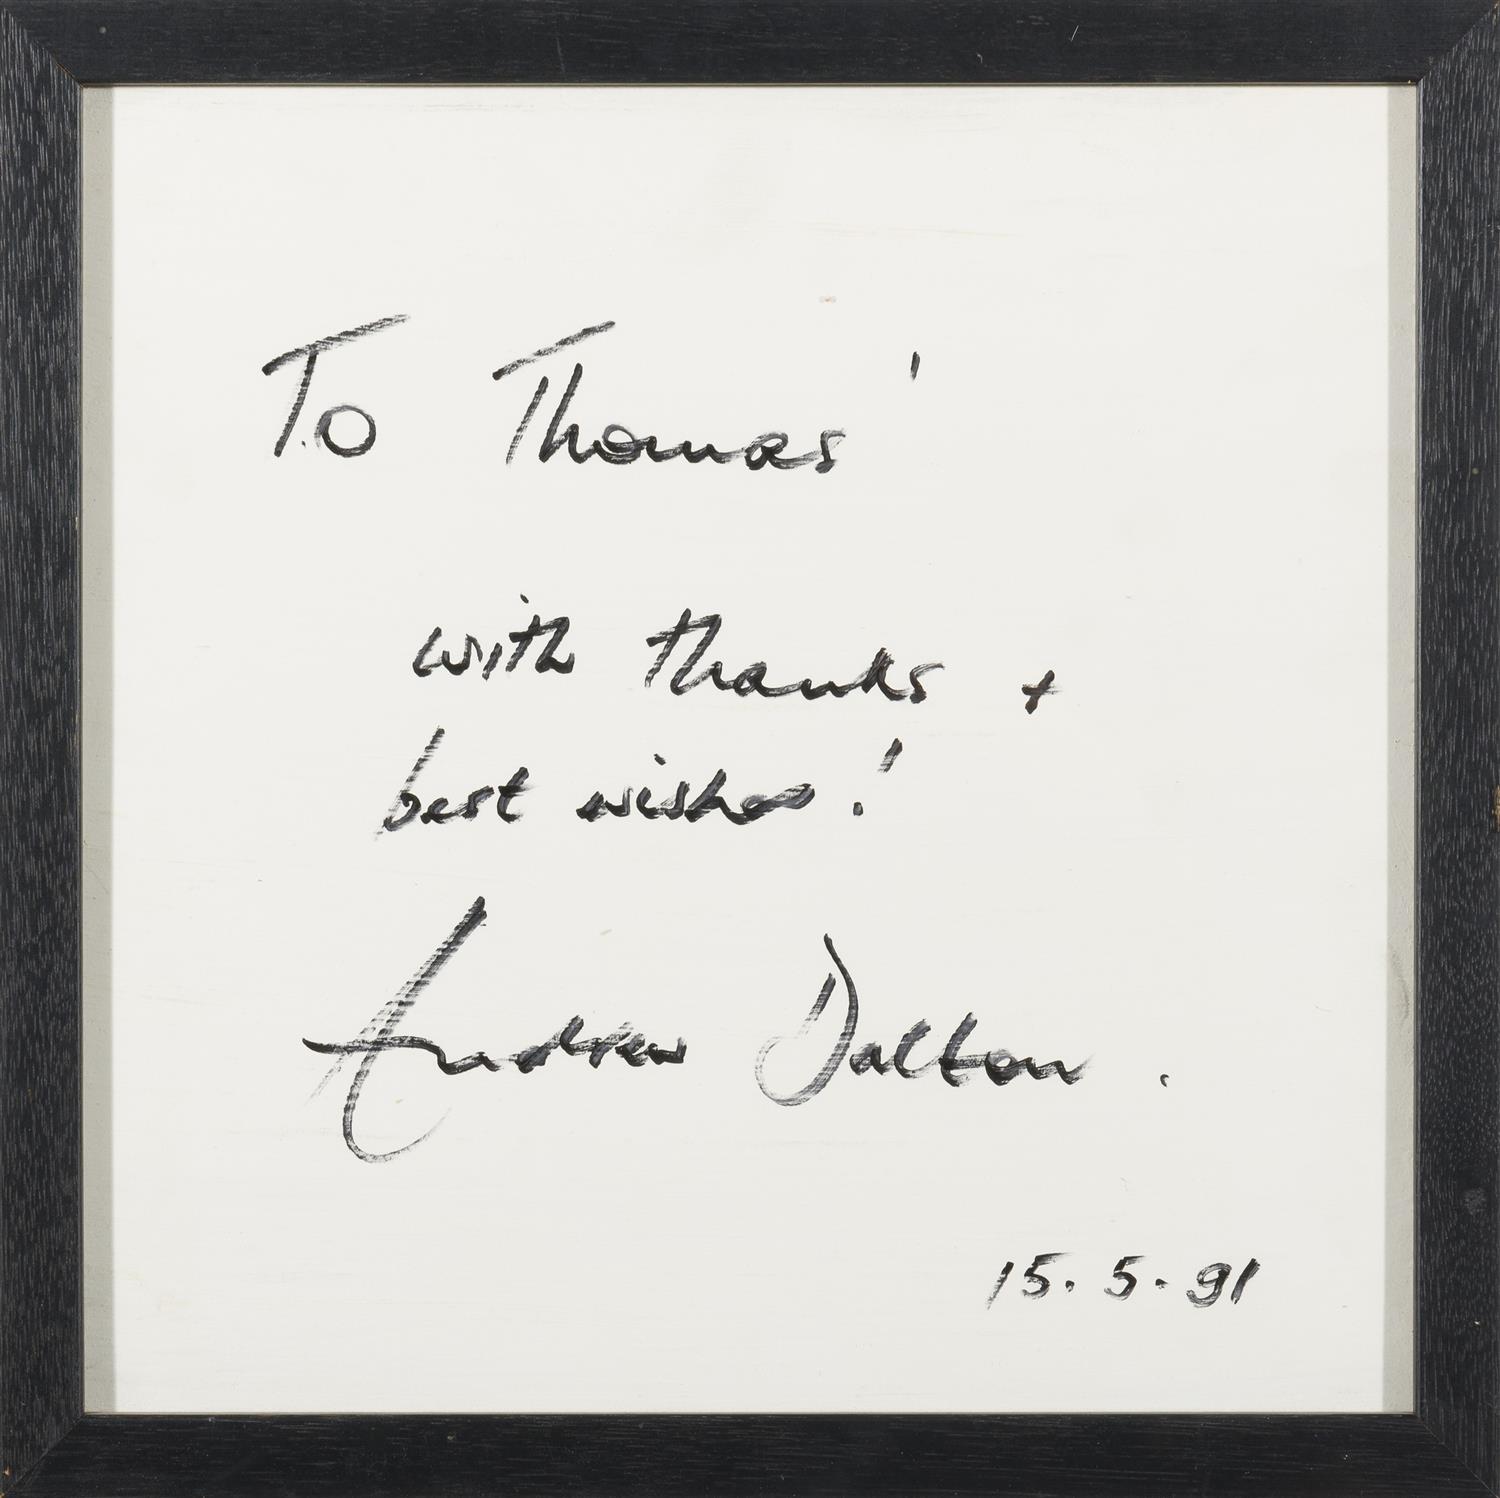 To Thomas'
with thanks +
best wishes!
Andrew Dalton.
15.5.91